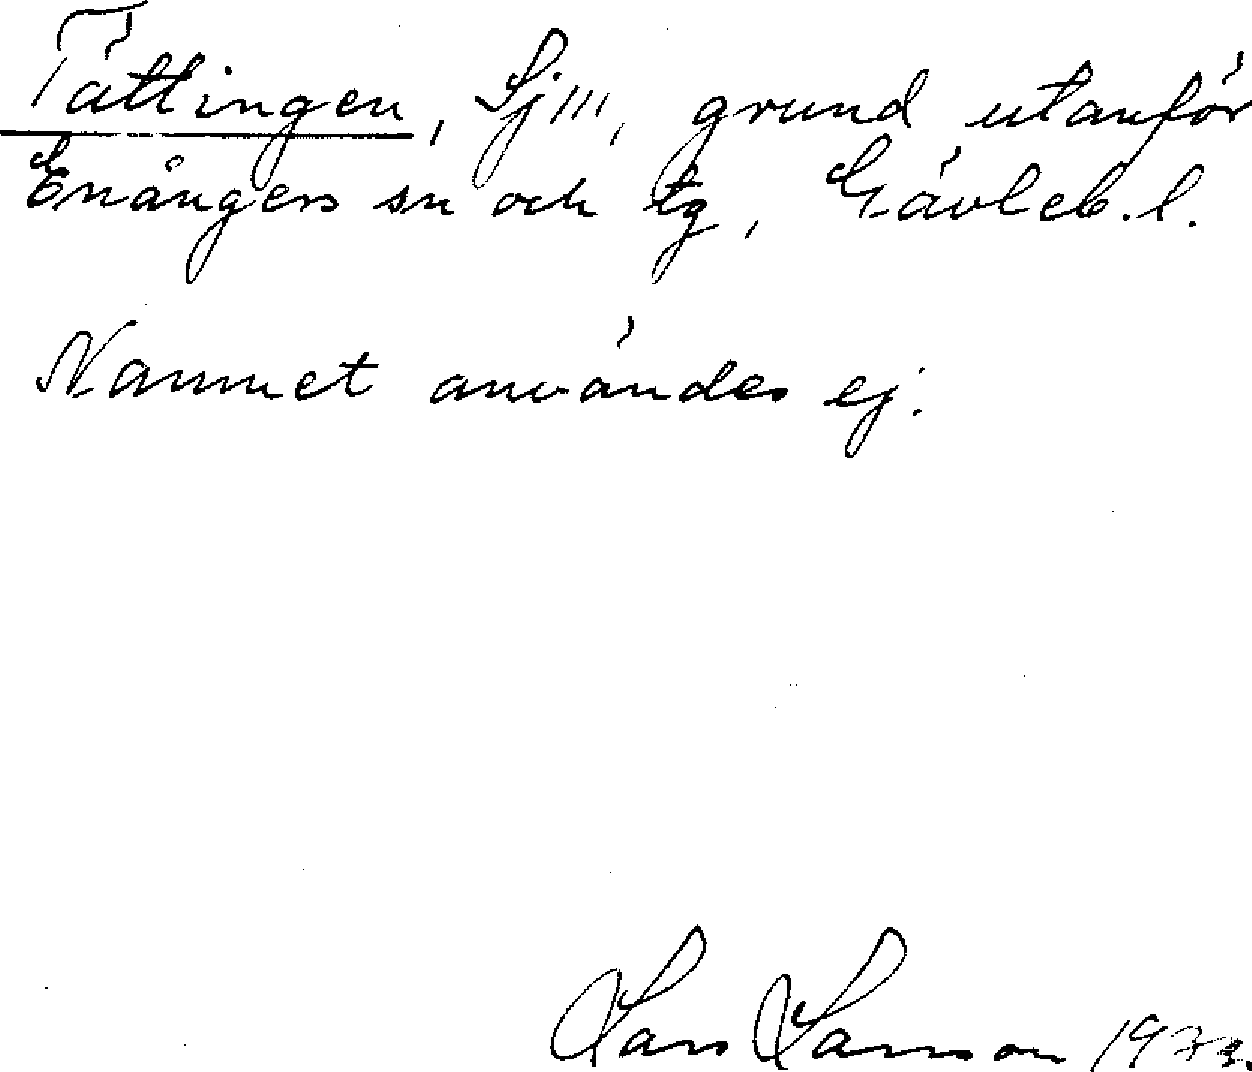 Tättingen, Sj 111, grund utanför
Enångers sn och tg, Gävleb. l.
Namnet användes ej.
Lars Larsson 1973.